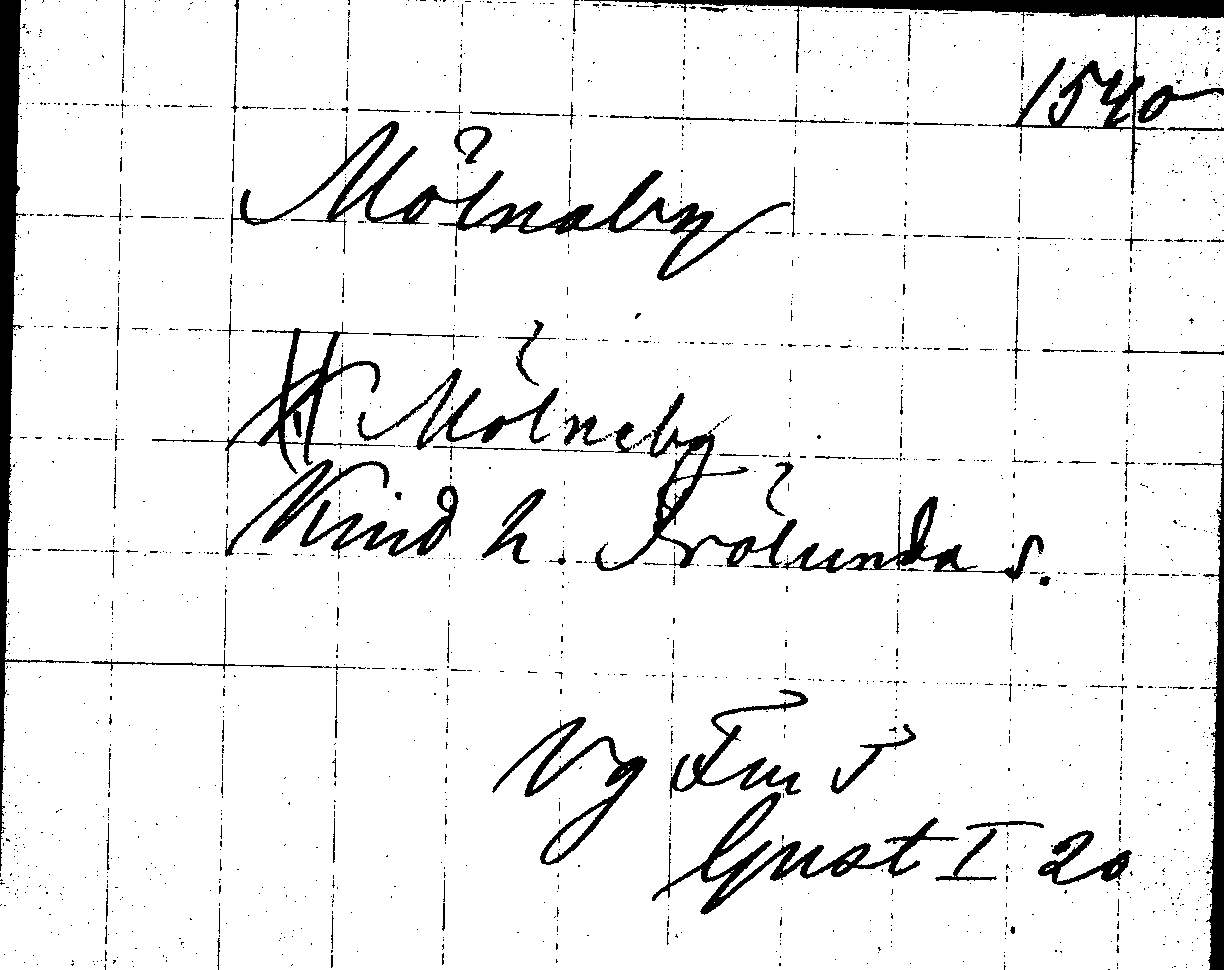 1540
Mölnaby
Mölneby
Kind h. Frölunda s.
Vg Fm 5
Gust I 20